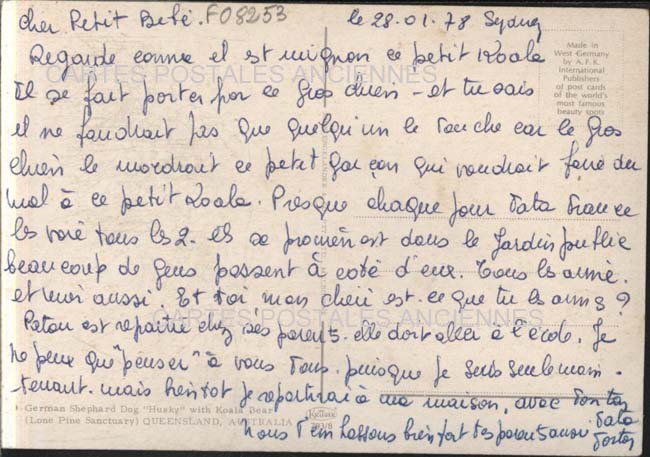 cher Petit Bébé. F08253 le 28.01.78 Sydney
Made in
West Germany
by A.F.K.
International
Publishers
of post cards
of the world's
most famous
beauty spots
Regarde comme il est mignon ce petit Koala
CARTES POSTALES ANCIENNES
Il se fait porter par ce Gros chien - et tu sais
il ne faudrait pas que quelqu'un le touche car le Gros
chien le mordrait ce petit garçon qui voudrait faire du
mal à ce petit Koala. Presque chaque jour Tata France
les voit tous les 2. ils se promènent dans le Jardin public
beaucoup de Gens passent à coté d'eux. Tous les aime.
et moi aussi. Et toi mon chéri est-ce que tu les aimes ?
CARTES POSTALES ANCIENNES
est repartie chez ses parents. elle doit aller à l'école. Je
ne peux que "penser" à vous Tous. puisque je suis seule main-
tenant. mais bientot je repartirai à ma maison, avec Tonton
German Shephard Dog "Husky" with Koala Bear
(Lone Pine Sanctuary) QUEENSLAND, AUSTRALIA
793/8
nous t'embassons bien fort tes parents aussi. Tata
Tonton